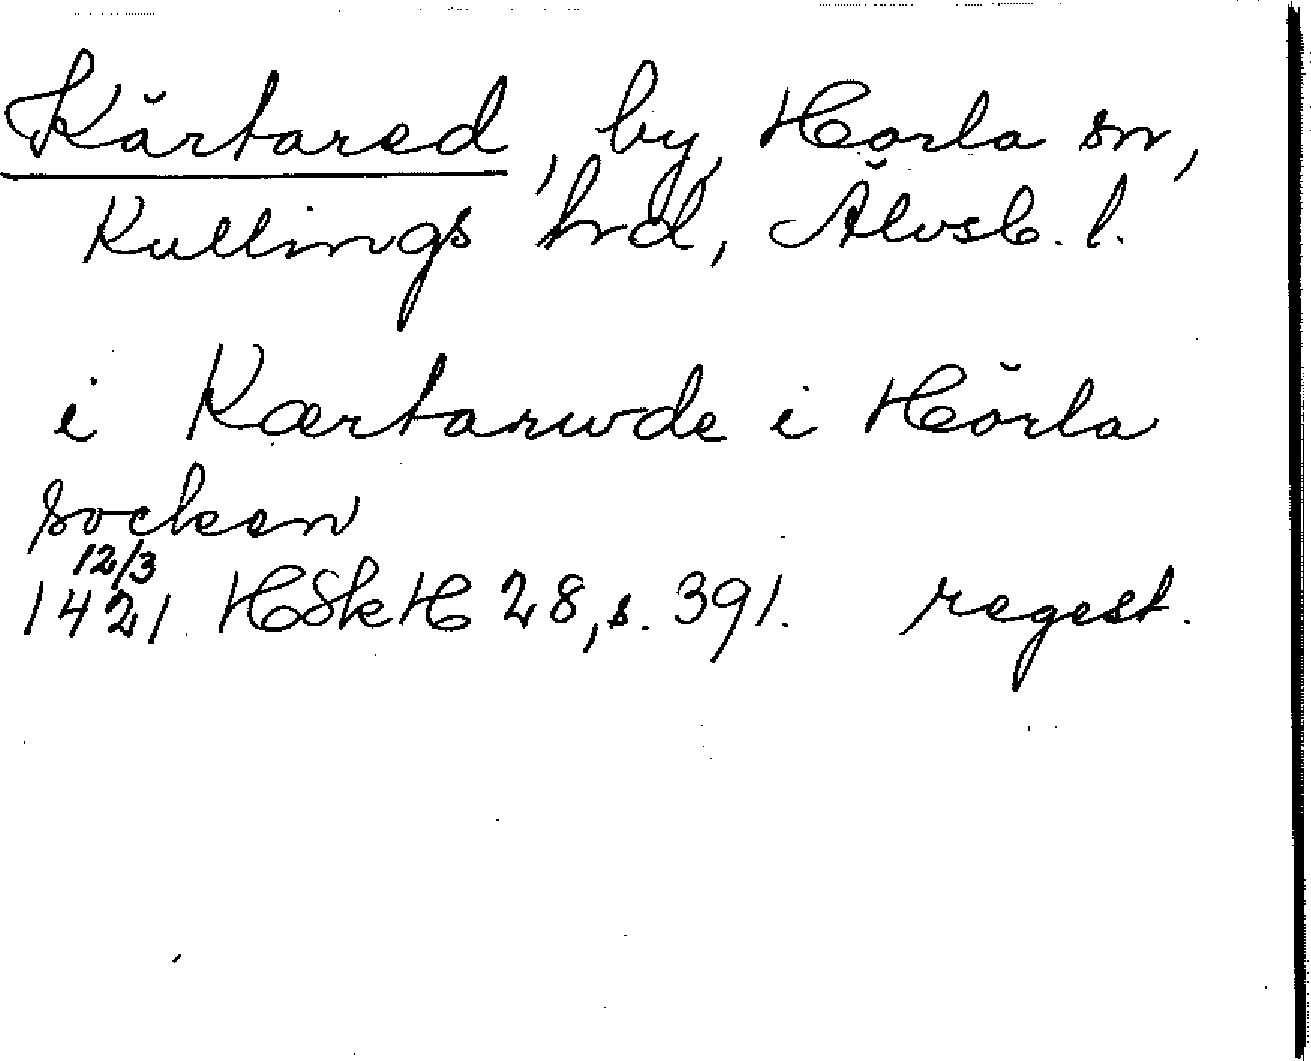 Kärtared, by, Horla sn,
Kullings hd, Älvsb. l.
i Kærtarwde i Hörla
socken
12/3
1421 HSkH 28, s. 391. regest.